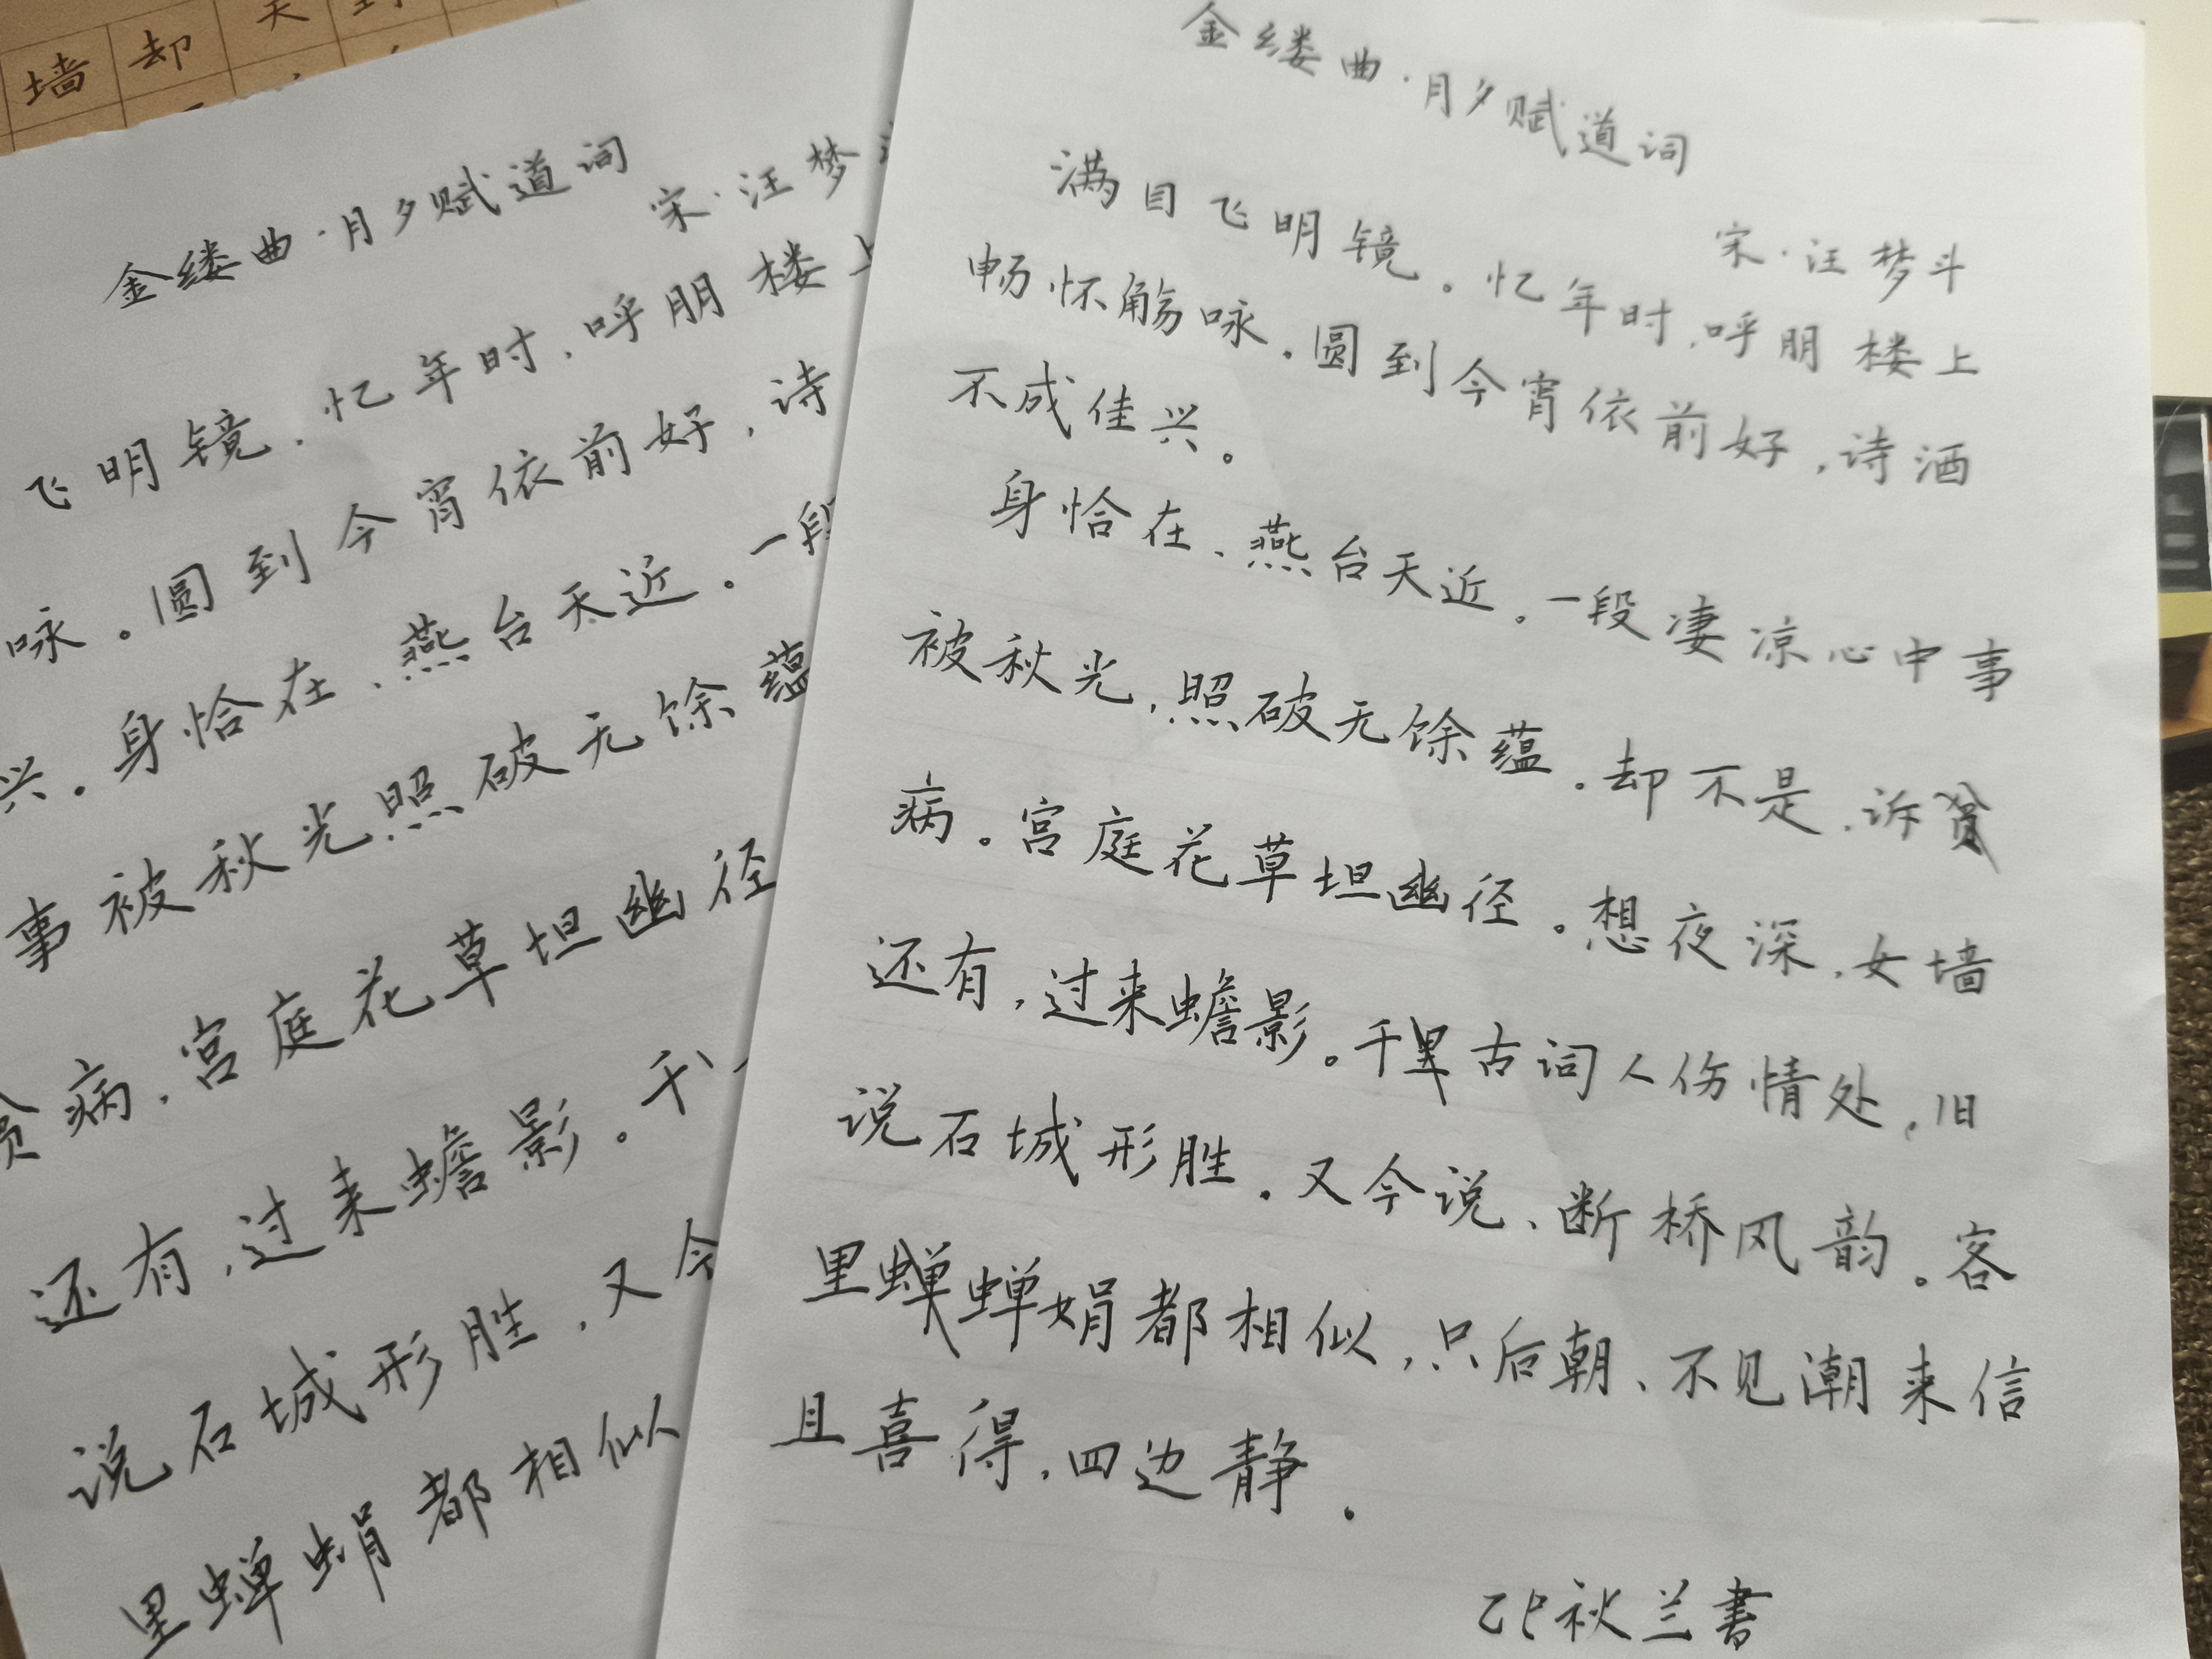 墙却
金缕曲·月夕赋道词
宋·汪梦
飞明镜.忆年时.呼朋楼上
咏。圆到今宵依前好,诗
兴.身恰在、燕台天近.一段
事被秋光.照破无馀蕴
病.宫庭花草坦幽径
还有,过来蟾影.千
说石城形胜,又今
里蝉蜎都相似
金缕曲·月夕赋道词
宋·汪梦斗
满目飞明镜。忆年时.呼朋楼上
畅怀觞咏.圆到今宵依前好,诗酒
不成佳兴。
身恰在、燕台天近。一段凄凉心中事
被秋光,照破无馀蕴.却不是.诉贫
病。宫庭花草坦幽径.想夜深.女墙
还有,过来蟾影。千里古词人伤情处,旧
说石城形胜.又今说、断桥风韵.客
里蝉娟都相似,只后朝、不见潮来信
且喜得,四边静.
秋兰書